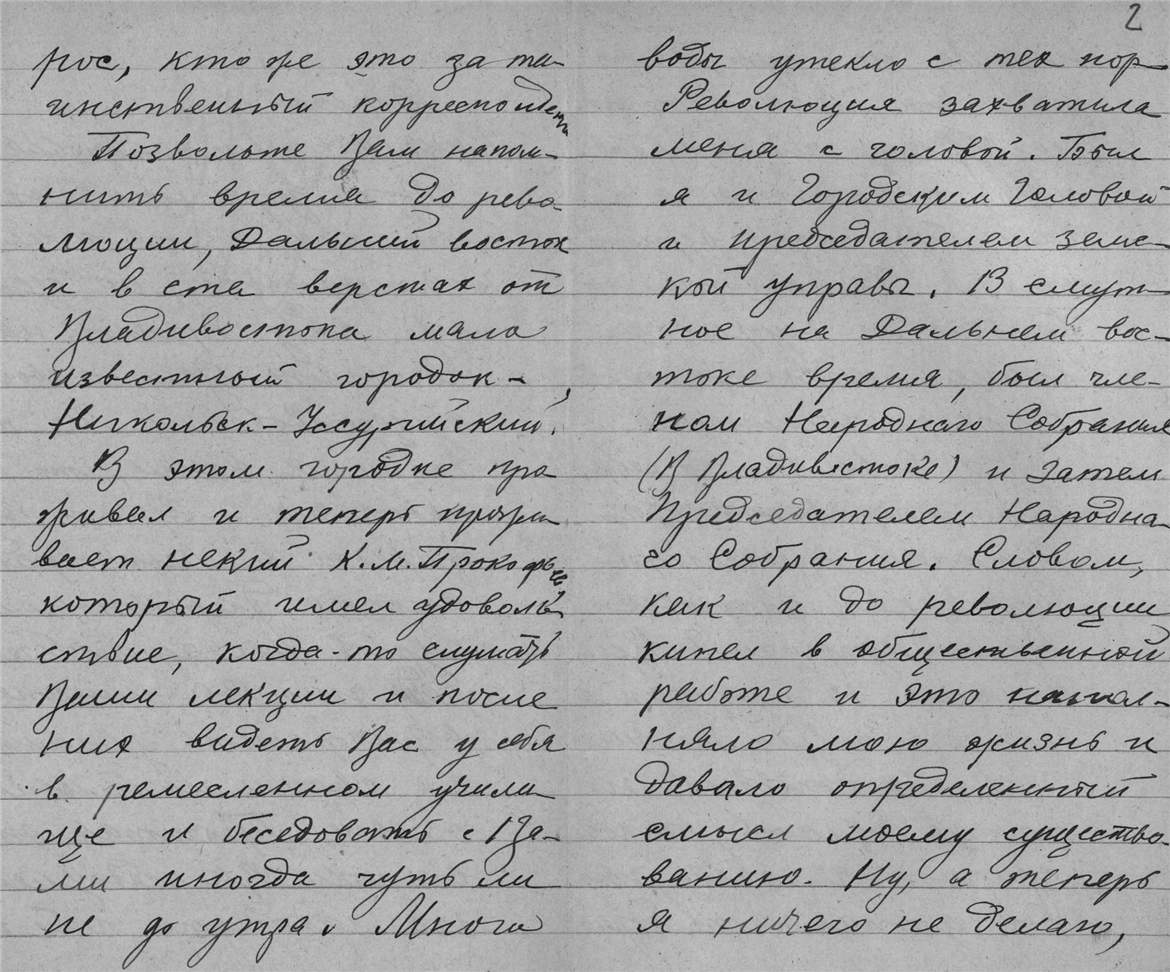 2
рос, кто же это за та-
инственный корреспондент
Позвольте Вам напом-
нить время до рево-
люции, Дальний восток
и в ста верстах от
Владивостока мало
известный городок-
Никольск-Уссурийский.
В этом городке про
живал и теперь прожи
вает некий К.М. Прокофьев,
который имел удоволь
ствие, когда-то слушать
Ваши лекции и после
них видеть Вас у себя
в ремесленном учили
ще и беседовать с Ва-
ми иногда чуть ли
не до утра. Много
воды утекло с тех пор
Революция захватила
меня с головой. Был
я и Городским Головой
и председателем земс-
кой управы. В смут-
ное на Дальнем вос-
токе время, был чле-
ном Народнаго Собрания
(В Владивостоке) и затем
Председателем Народна-
го Собрания. Словом,
как и до революции
кипел в общественной
работе и это напол-
няло мою жизнь и
давало определенный
смысл моему существо-
ванию. Ну, а теперь
я ничего не делаю,